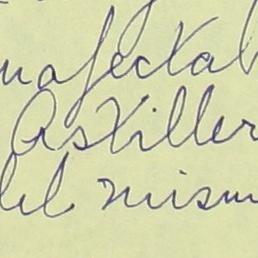 nafectab
Astiller
del mism